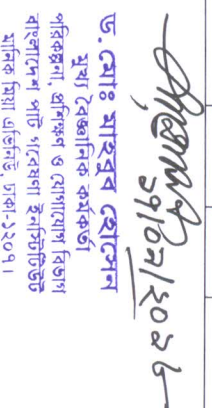 ১৭/০৭/২০২৬
ড. মোঃ মাহবুব হোসেন
মুখ্য বৈজ্ঞানিক কর্মকর্তা
পরিকল্পনা, প্রশিক্ষণ ও যোগাযোগ বিভাগ
বাংলাদেশ পাট গবেষণা ইনস্টিটিউট
মানিক মিয়া এভিনিউ, ঢাকা-১২০৭।